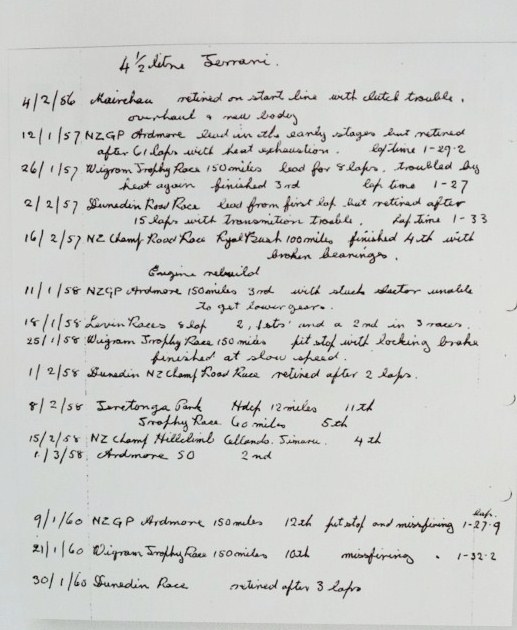 4 ½ litre Ferrari.
4/2/56 Mairehau retired on start line with clutch trouble.
overhaul & new body
12/1/57 NZGP Ardmore lead in the early stages but retired
after 61 laps with heat exhaustion. lap time 1-29-2
26/1/57 Wigram Trophy Race 150 miles lead for 8 laps. troubled by
heat again finished 3rd lap time 1-27
2/2/57 Dunedin Road Race lead from first lap but retired after
15 laps with transmition trouble. Lap time 1-33
16/2/57 NZ Champ Road Race Ryal Bush 100 miles finished 4th with
broken bearings.
Engine rebuild
11/1/58 NZGP Ardmore 150 miles 3rd with stuck selector unable
to get lower gears.
18/1/58 Levin Races 8 lap 2, 1sts' and a 2nd in 3 races.
25/1/58 Wigram Trophy Race 150 miles pit stop with locking brake
finished at slow speed.
1/2/58 Dunedin NZ Champ Road Race retired after 2 laps.
8/2/58 Teretonga Park Hdcp 12 miles 11th
Trophy Race 60 miles 5th
15/2/58 NZ Champ Hillclimb Timaru. 4th
1/3/58 Ardmore 50 2nd
Lap.
9/1/60 NZGP Ardmore 150 miles 12th pit stop and missfiring 1-27-9
21/1/60 Wigram Trophy Race 150 miles 10th missfiring. 1-32-2
30/1/60 Dunedin Race retired after 3 laps